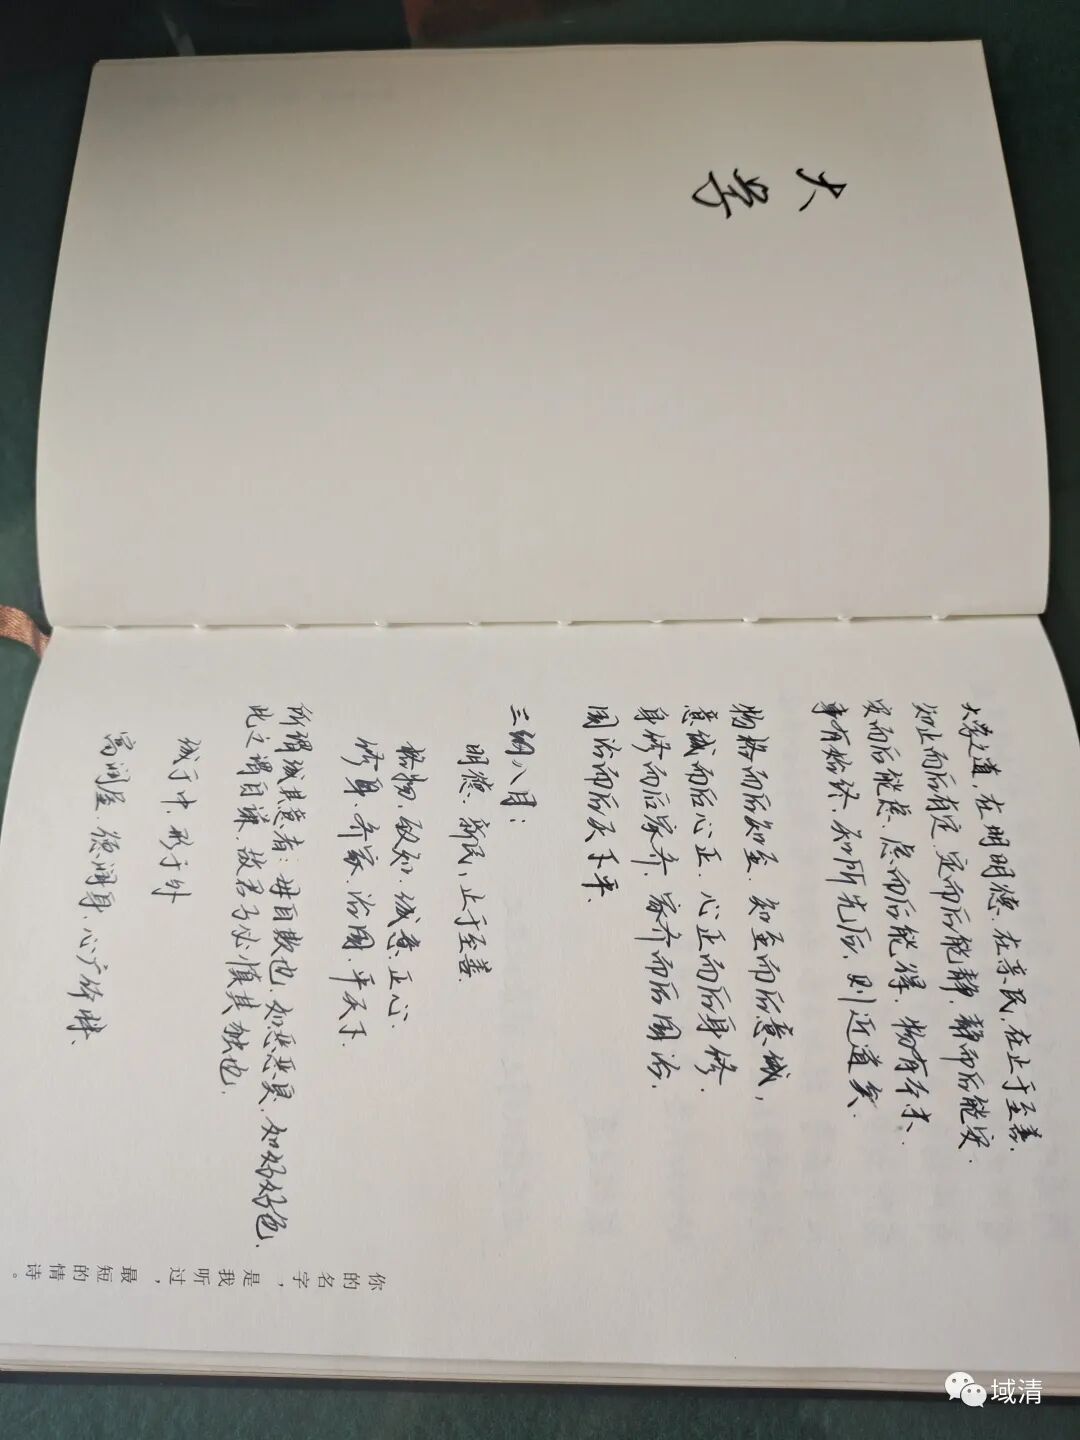 大学
大学之道，在明明德，在亲民，在止于至善。
知止而后有定，定而后能静，静而后能安，
安而后能虑，虑而后能得，物有本末，
事有始终，知所先后，则近道矣。
物格而后知至，知至而后意诚，
意诚而后心正，心正而后身修，
身修而后家齐，家齐而后国治，
国治而后天下平。
三纲八目：
明德、新民，止于至善
格物、致知、诚意、正心、
修身、齐家、治国、平天下.
所谓诚其意者：毋自欺也，如恶恶臭，如好好色，
此之谓自谦，故君子必慎其独也.
诚于中，形于外
富润屋，德润身，心广体胖、
你的名字，是我听过，最短的情诗。
域清